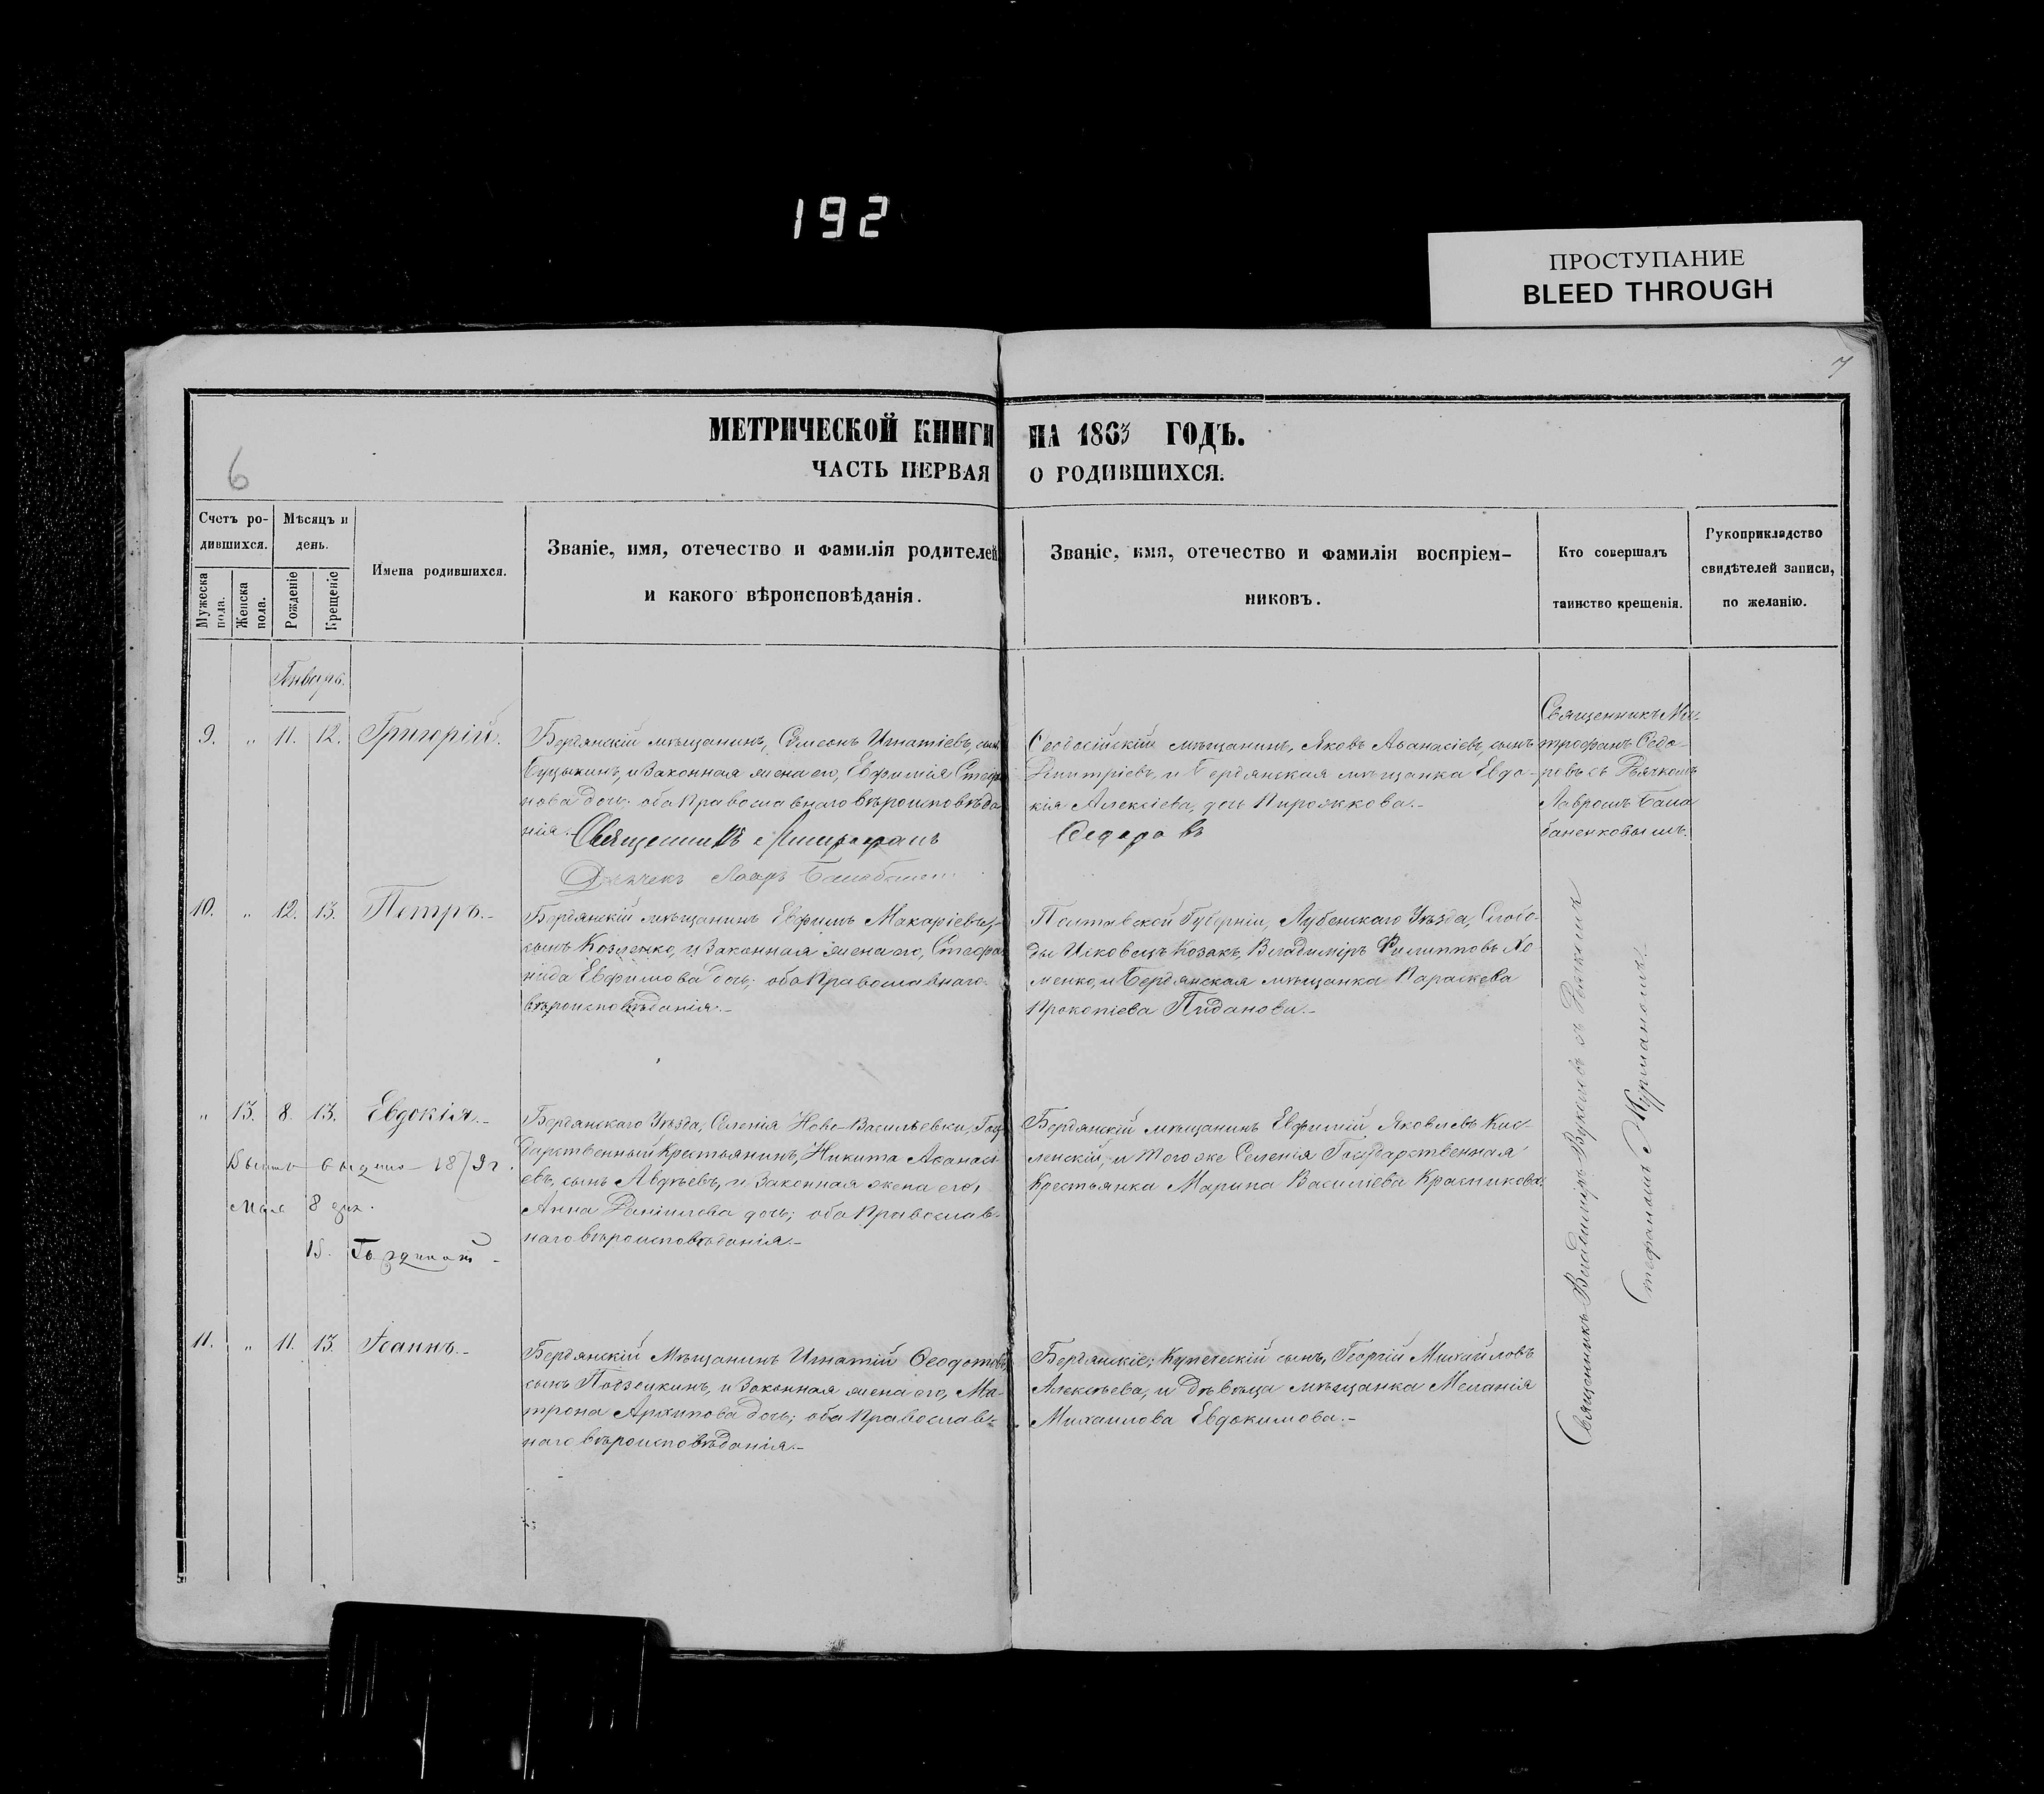 192
ПРОСТУПАНИЕ
BLEED THROUGH
7
МЕТРИЧЕСКОЙ КНИГИ НА 1863 ГОДЪ.
6
ЧАСТЬ ПЕРВАЯ О РОДИВШИХСЯ.
Счетъ ро-
дившихся.
Мужеска пола.
Женска пола.
Мѣсяцъ и
день.
Рожденіе
Крещеніе
Имена родившихся.
Званіе, имя, отечество и фамилія родителей
и какого вѣроисповѣданія.
Званіе, имя, отечество и фамилія воспріем-
никовъ.
Кто совершалъ
таинство крещенія.
Рукоприкладство
свидѣтелей записи,
по желанію.
Генварь.
9. " 11. 12. Григорій.
Бердянскій мѣщанинъ, Симеонъ Игнатіевъ, сынъ
и Законная жена его, Евфимія Стефа
нова дочь; оба Православнаго вѣроисповѣда
нія.
Священникъ Митрофанъ
Ѳеодосійскій мѣщанинъ, Яковъ Аѳанасіевъ, сынъ
Дмитріевъ, и Бердянская мѣщанка Евдо-
кія Алексіева, дочь Пирожкова.-
Ѳедоровъ
Священникъ Ми-
трофанъ Ѳедо-
ровъ съ Дьячкомъ
Лавромъ Бала
баненковымъ.
Дьячекъ Лавръ
10. " 12. 13. Петръ.-
Бердянскій мѣщанинъ Евфимъ Макаріевъ,
сынъ Козленко, и Законная жена его, Стефа
нида Евфимова дочь; оба Православнаго
вѣроисповѣданія.-
Полтавской Губерніи, Лубенскаго Уѣзда, Слобо-
ды Козакъ, Владиміръ Филипповъ Хо
менко, и Бердянская мѣщанка Параскева
Прокопіева
" 13. 8. 13. Евдокія.-
Выпись выдана 1879 г.
Мая 8 дня.
15.
Бердянскаго Уѣзда, Селенія Ново-Васильевки, Госу
дарственный Крестьянинъ, Никита Аѳанасі
евъ, сынъ Авдѣевъ, и Законная жена его,
Анна Даніилова дочь; оба Православ-
наго вѣроисповѣданія.-
Бердянскій мѣщанинъ Евфимій Яковлевъ Кис
ленскій, и того же Селенія Государственная
Крестьянка Марина Василіева Красникова.
11. " 11. 13. Іоаннъ.-
Бердянскій Мѣщанинъ Игнатій Ѳеодотовъ
сынъ и Законная жена его, Ма-
трона Архипова дочь; оба Православ-
наго вѣроисповѣданія.-
Бердянскіе; Купеческій сынъ, Георгій Михайловъ
Алексѣевъ, и дѣвица мѣщанка Меланія
Михаилова Евдокимова.-
Священникъ съ Дьячкомъ
Стефаномъ